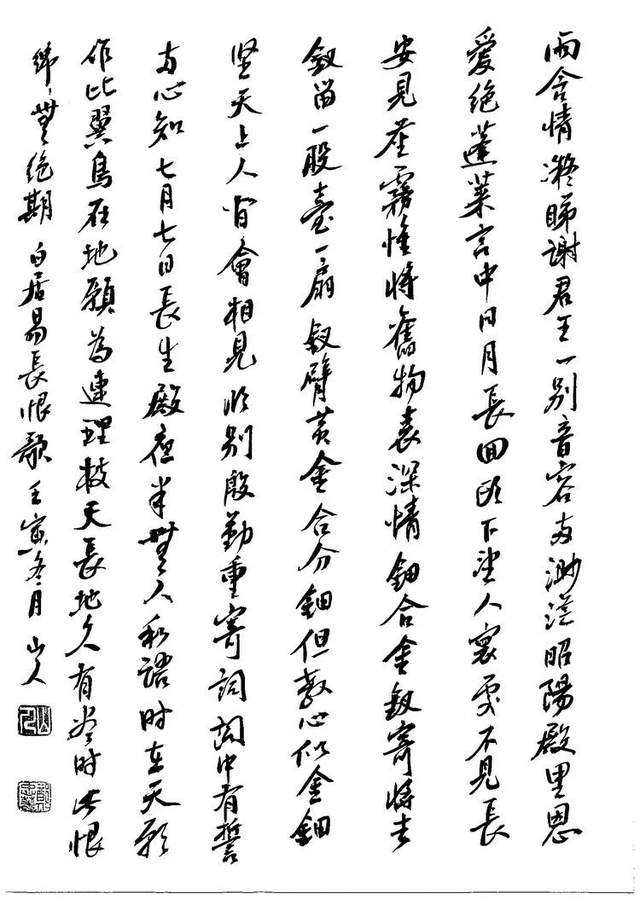 雨含情凝睇谢君王一别音容两渺茫昭陽殿里恩
爱绝蓬莱宫中日月長回头下望人寰处不見長
安見塵霧惟将舊物表深情钿合金钗寄将去
钗留一股臺一扇钗擘黄金合分钿但教心似金钿
坚天上人间會相見临别殷勤重寄词词中有誓
两心知七月七日長生殿夜半無人私语时在天願
作比翼鳥在地願為連理枝天長地久有尽时此恨
绵绵無绝期 白居易長恨歌 壬寅冬月 山人